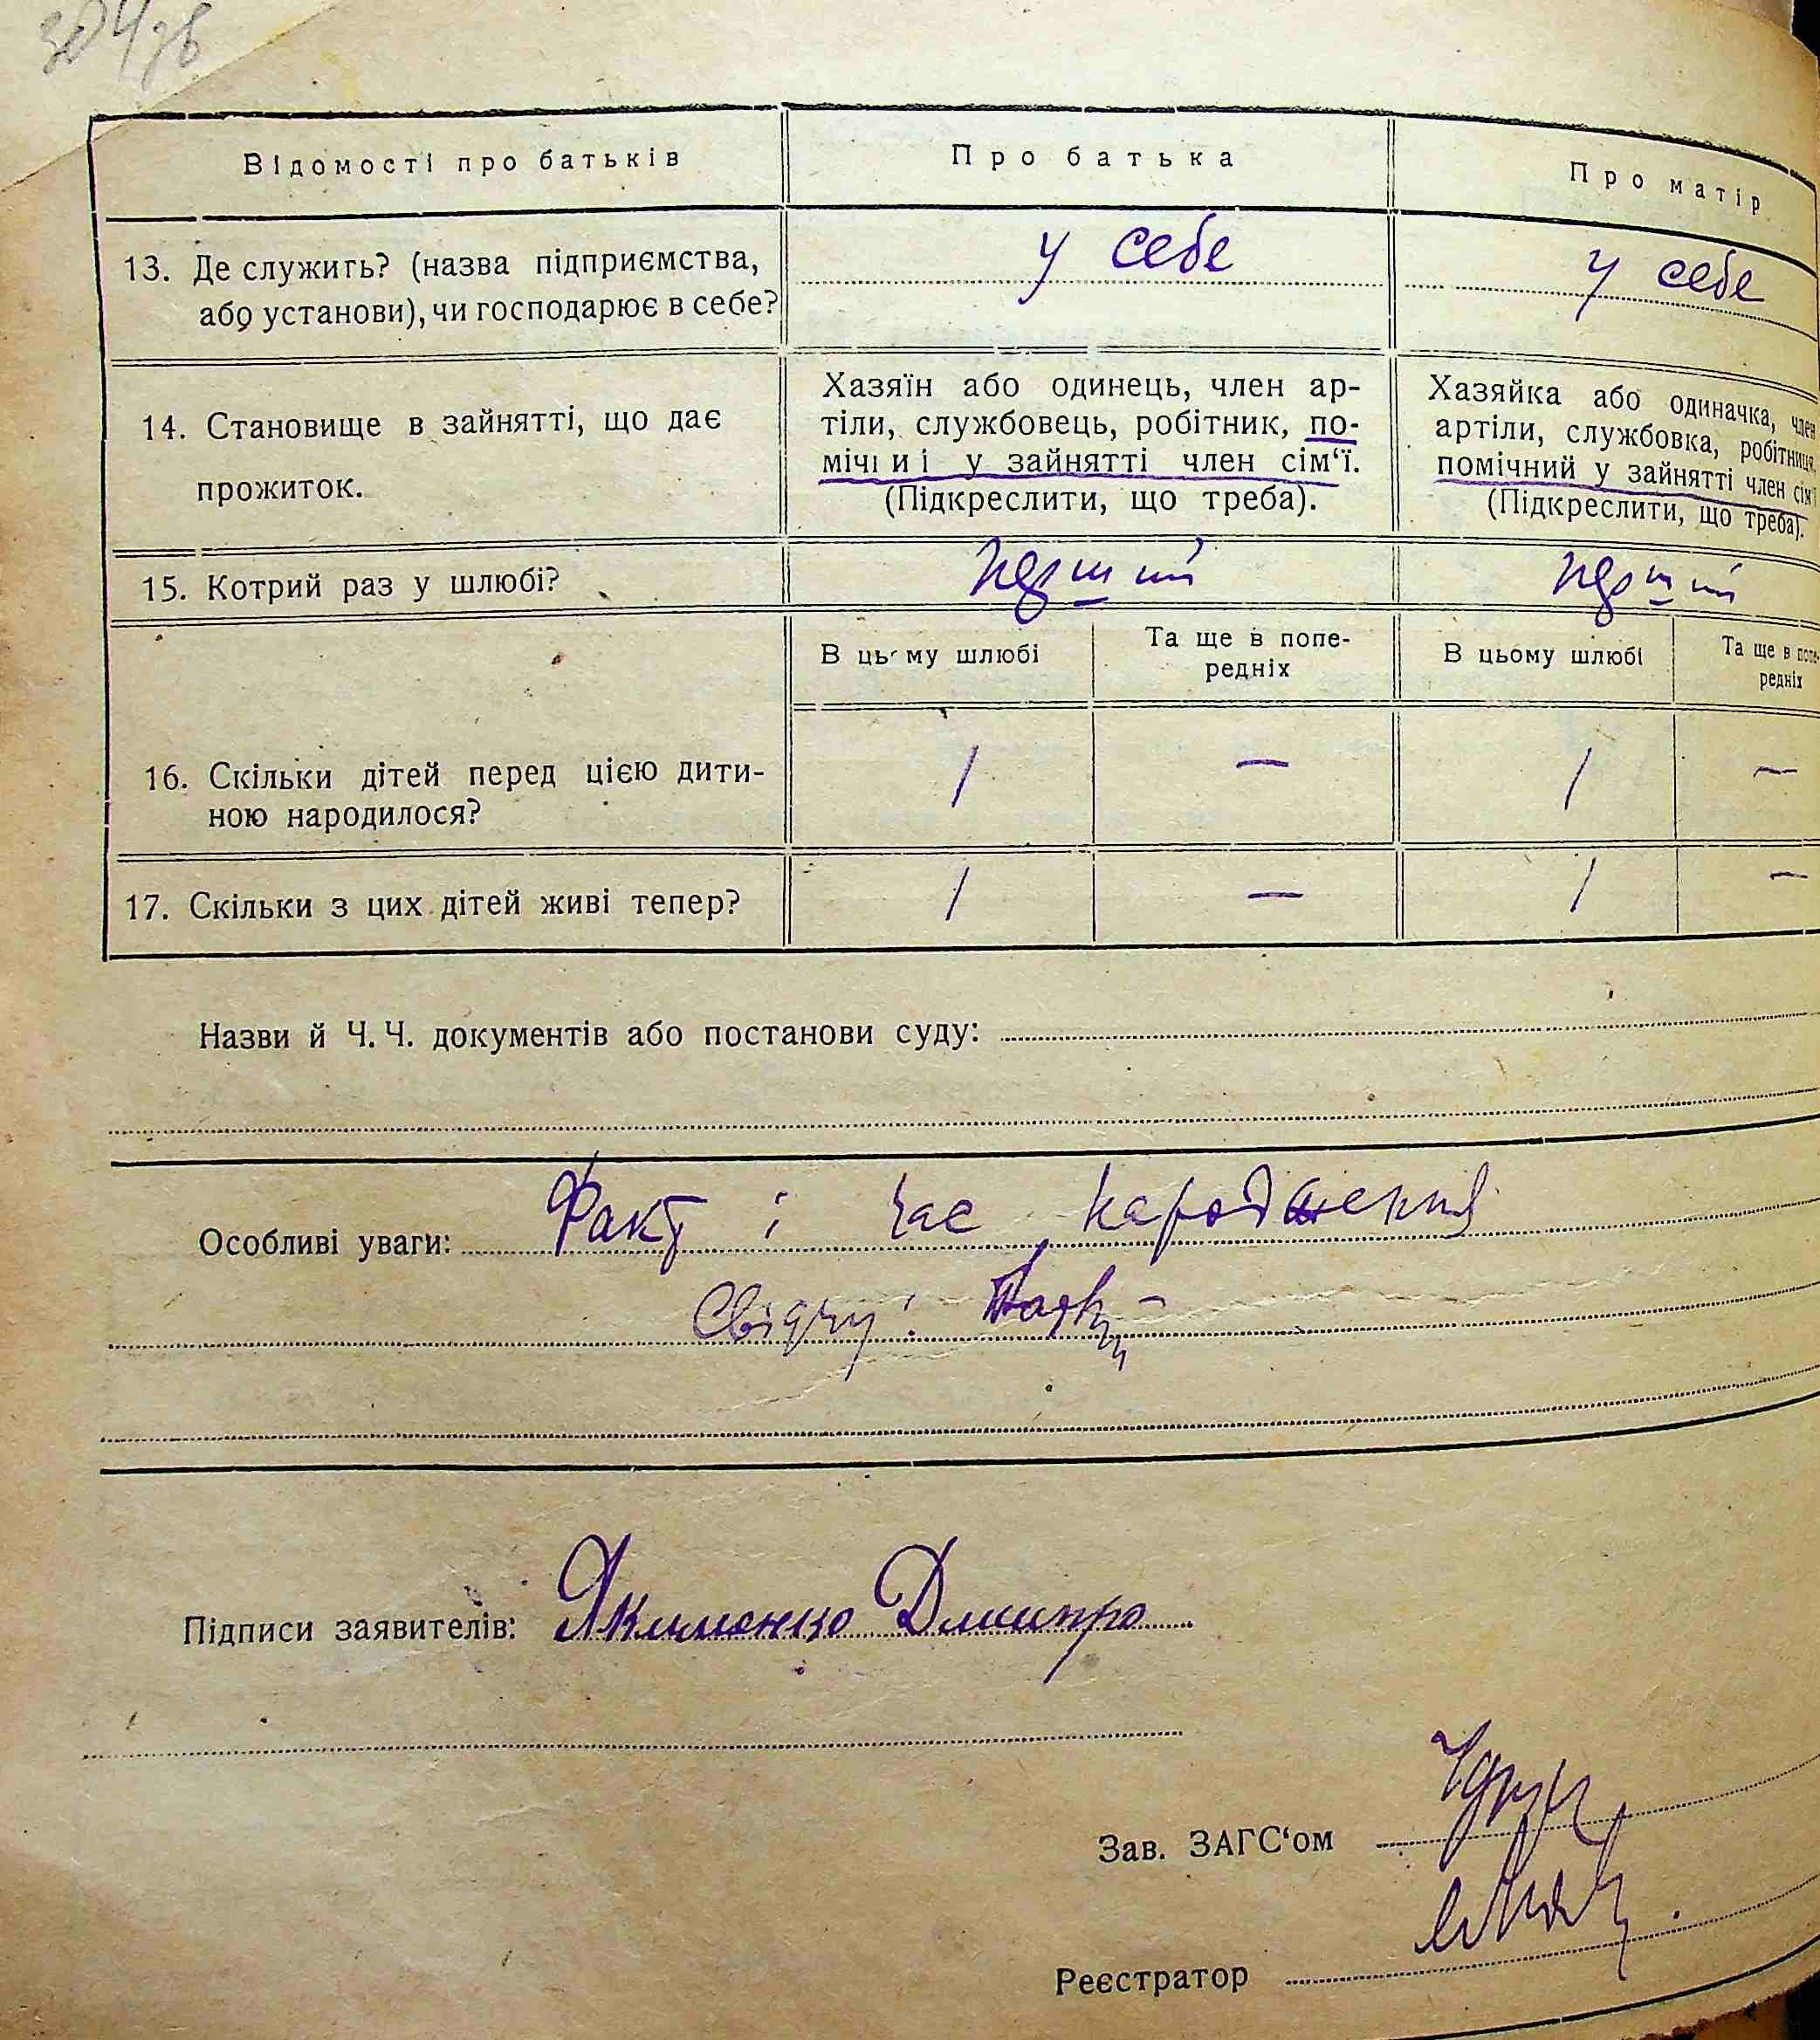 304 зв
Відомості про батьків
Про батька
Про матір
13. Де служить? (назва підприємства,
або установи), чи господарює в себе?
у себе
у себе
14. Становище в зайнятті, що дає
прожиток.
Хазяїн або одинець, член ар-
тіли, службовець, робітник, по-
мічниі у зайнятті член сім‘ї.
(Підкреслити, що треба).
Хазяйка або одиначка, член
артіли, службовка, робітниця,
помічний у зайнятті член сім‘ї
(Підкреслити, що треба).
15. Котрий раз у шлюбі?
перший
перший
В цьому шлюбі
Та ще в попе-
редніх
В цьому шлюбі
Та ще в попе-
редніх
16. Скільки дітей перед цією дити-
ною народилося?
1 — 1 —
17. Скільки з цих дітей живі тепер?
1 — 1 —
Назви й Ч. Ч. документів або постанови суду:
Особливі уваги: Факт і час народження
Свідчу:
Підписи заявителів: Якименко Дмитро
Зав. ЗАГС‘ом
Реєстратор